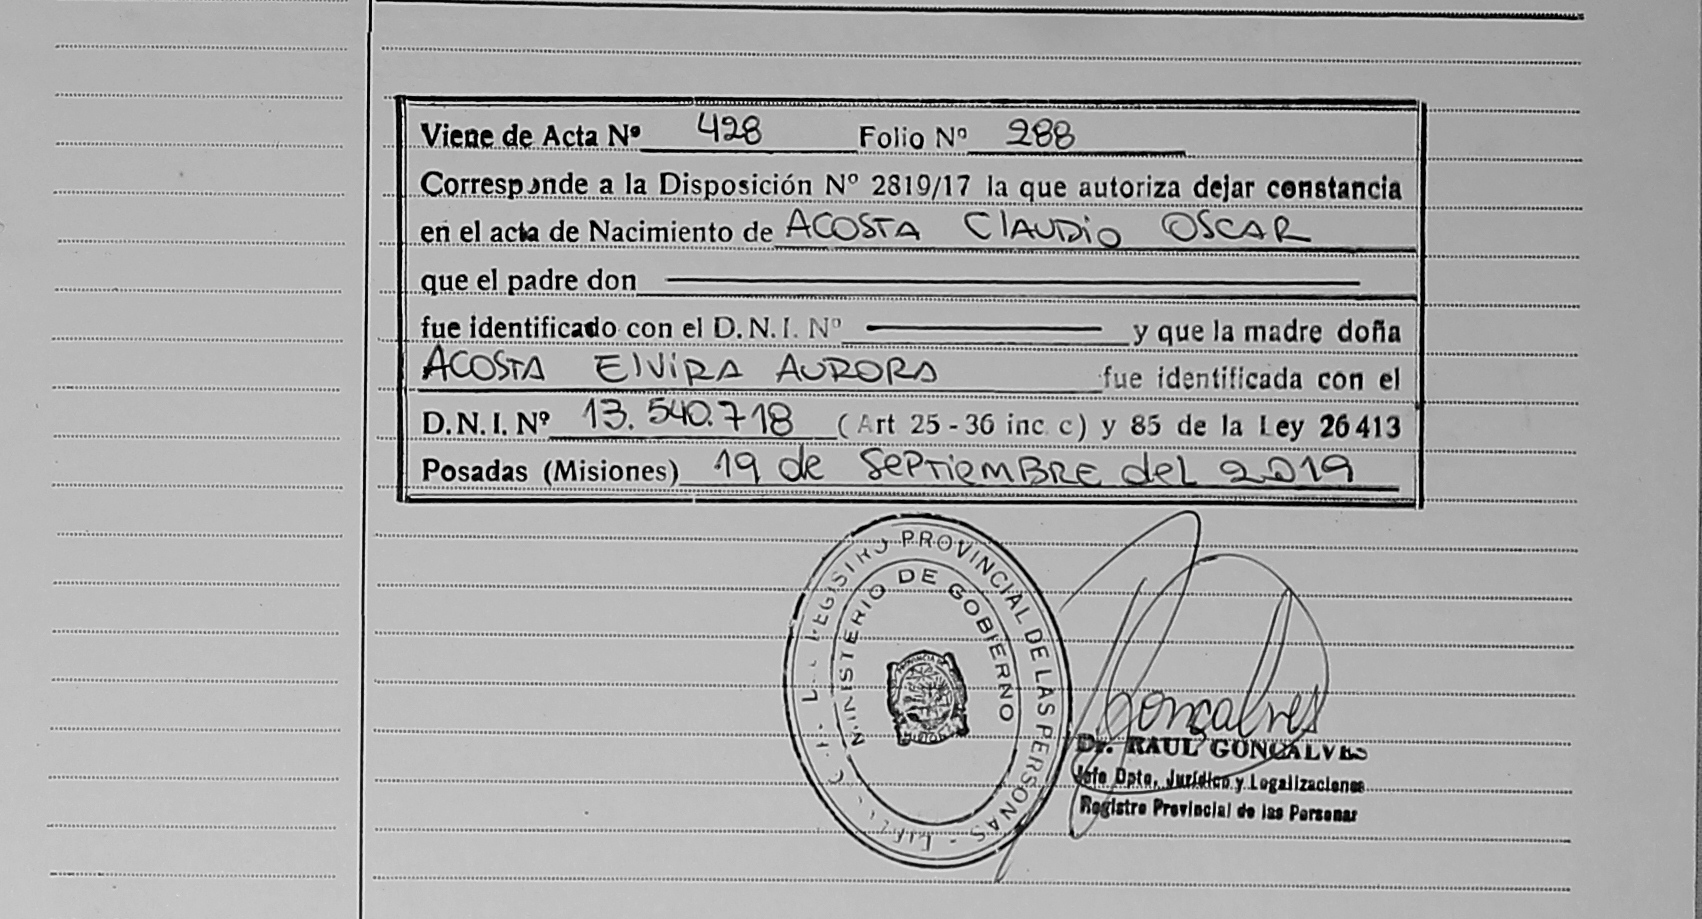 Viene de Acta Nº 428 Folio Nº 288
Corresponde a la Disposición Nº 2819/17 la que autoriza dejar constancia
en el acta de Nacimiento de ACOSTA CLAUDIO OSCAR
que el padre don
fue identificado con el D.N.I. Nº y que la madre doña
ACOSTA ElViRA AURORA fue identificada con el
D.N.I. Nº 13.540.718 (Art 25-36 inc c) y 85 de la Ley 26413
Posadas (Misiones) 19 de SEPTiEMBRE del 2019
REGISTRO PROVINCIAL DE LAS PERSONAS
MINISTERIO DE GOBIERNO
PROVINCIA DE
MISIONES
Gonçalves
Dr. RAUL GONÇALVES
Jefe Dpto. Jurídico y Legalizaciones
Registro Provincial de las Personas